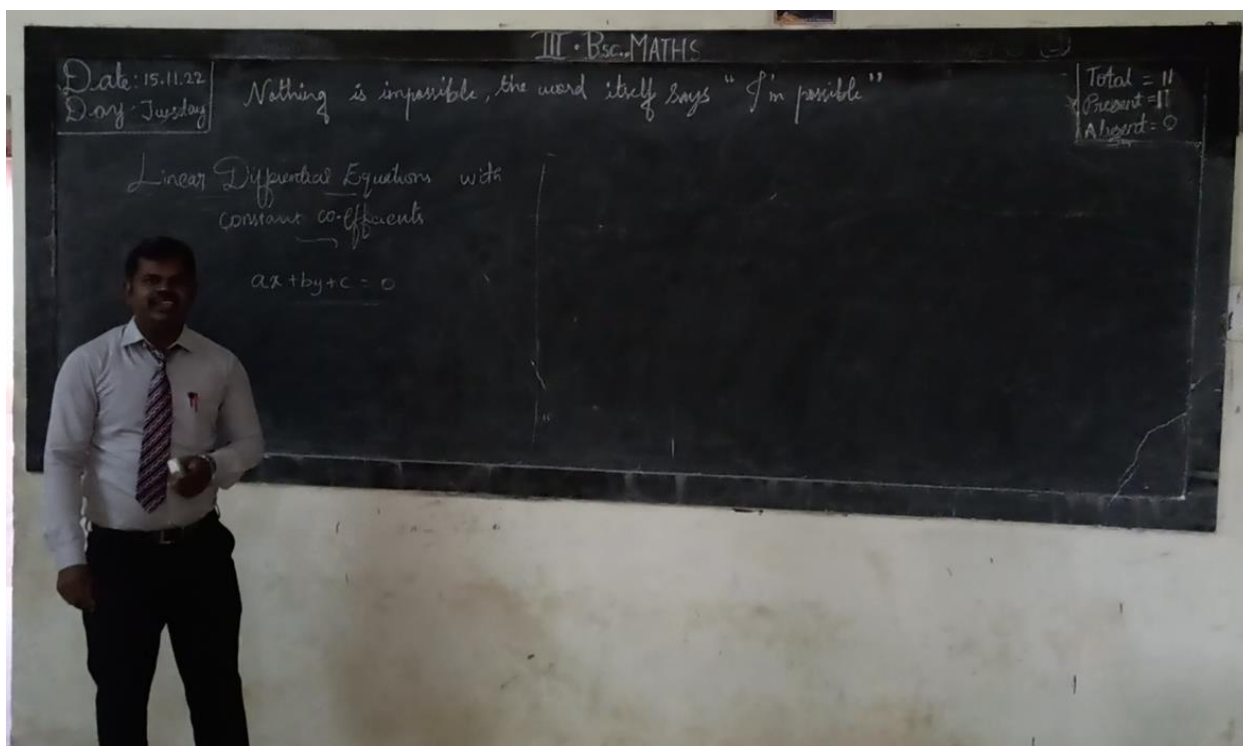 III • Bsc. MATHS
Date: 15.11.22
Day: Tuesday
Nothing is impossible, the word itself says “I'm possible”
Total = 11
Present = 11
Absent = 0
Linear Differential Equations with
constant co-efficients
ax+by+c = 0